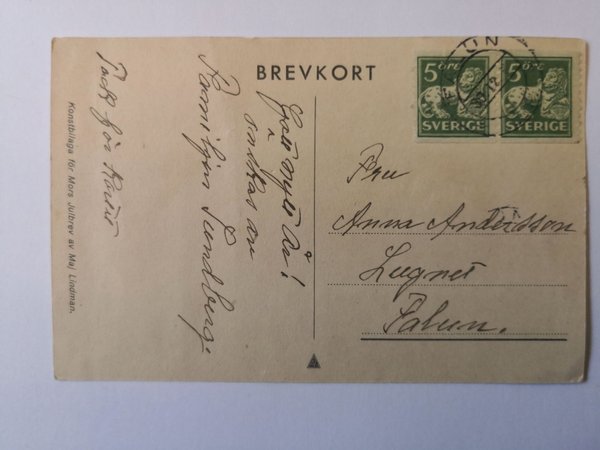 BREVKORT
5 öre
SVERIGE
5 öre
SVERIGE
UN
Gott nytt år!
önskas av
Familjen Lundberg.
Tack för kortet
Konstbilaga för Mors Julbrev av Maj Lindman.
Fru
Anna Andersson
Lugnet
Falun.